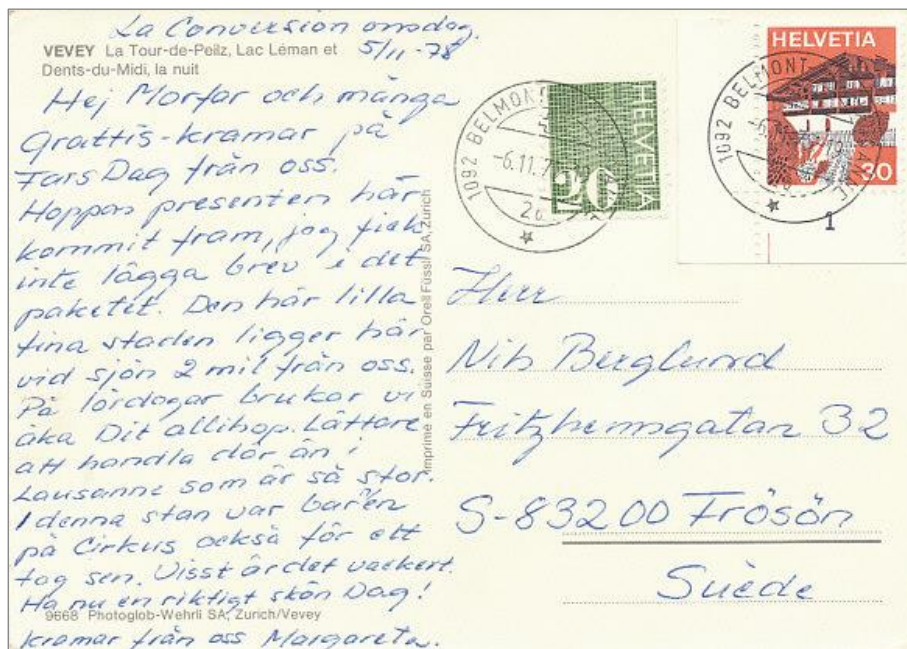 La Conversion onsdag
5/11-78
VEVEY La Tour-de-Peilz, Lac Léman et
Dents-du-Midi, la nuit
Hej Morfar och många
Grattis-kramar på
Fars Dag från oss.
Hoppas presenten har
kommit fram, jag fick
inte lägga brev i det
paketet. Den här lilla
fina staden ligger här
vid sjön 2 mil från oss.
På lördagar brukar vi
åka Dit allihop. Lättare
att handla där än i
Lausanne som är så stor.
I denna stan var bar'en
på Cirkus också för ett
tag sen. Visst är det vackert.
Ha nu en riktigt skön Dag!
9668 Photoglob-Wehrli SA, Zurich/Vevey
kramar från oss Margareta.
Imprimé en Suisse par Orell Füssli SA, Zurich
HELVETIA
20
1092 BELMONT
-6.11.7
HELVETIA
30
1092 BELMONT
1
Herr
Nils Berglund
Fritzhemsgatan 32
S-83200 Frösön
Suède